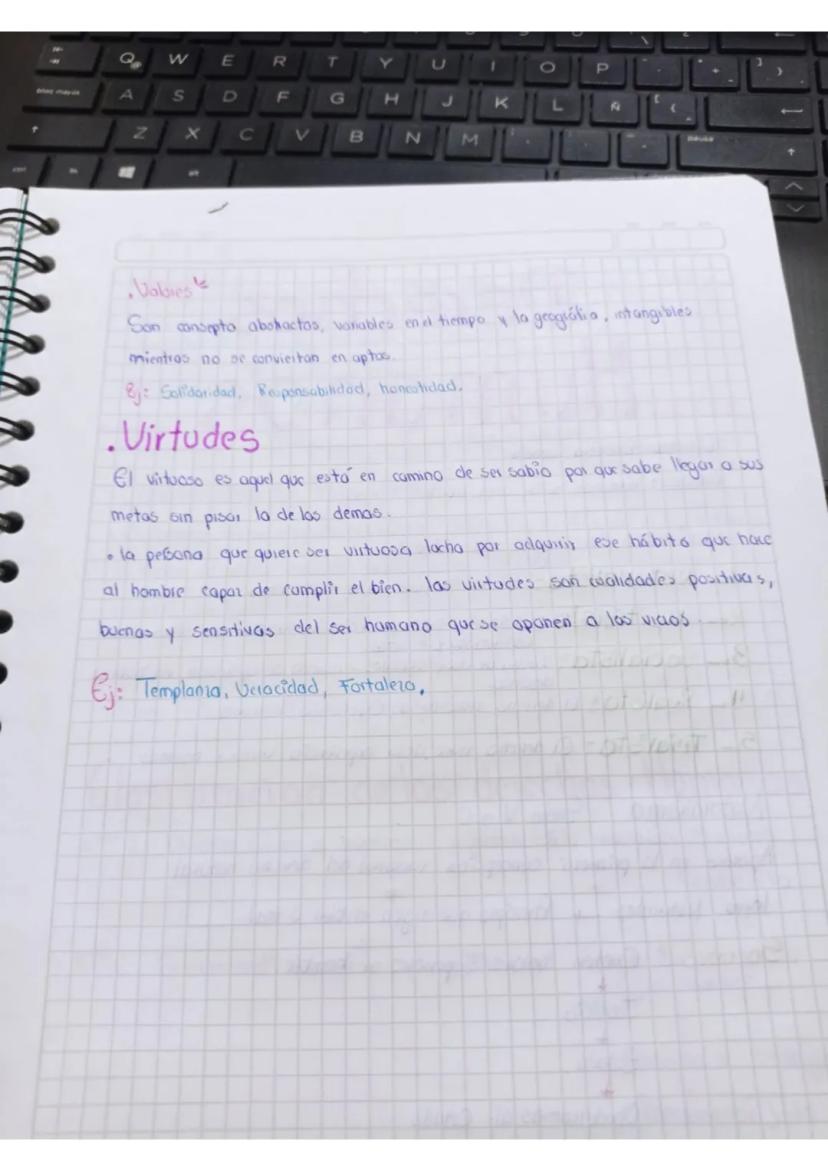 Q W E R T Y U I O P
A S D F G H J K L Ñ
Z X C V B N M
pausa
. Valores
Son consepto abstractos, variables en el tiempo y la geografía, intangibles
mientras no se conviertan en aptos.
Ej: Solidaridad, Responsabilidad, honestidad.
. Virtudes
El virtuoso es aquel que está en camino de ser sabio por que sabe llegar a sus
metas sin pisar la de los demas.
• la persona que quiere ser virtuosa lucha por adquirir ese hábito que hace
al hombre capaz de cumplir el bien. las virtudes son cualidades positivas,
buenas y sensitivas del ser humano que se oponen a los vicios.
Ej: Templanza, Veracidad, Fortaleza,